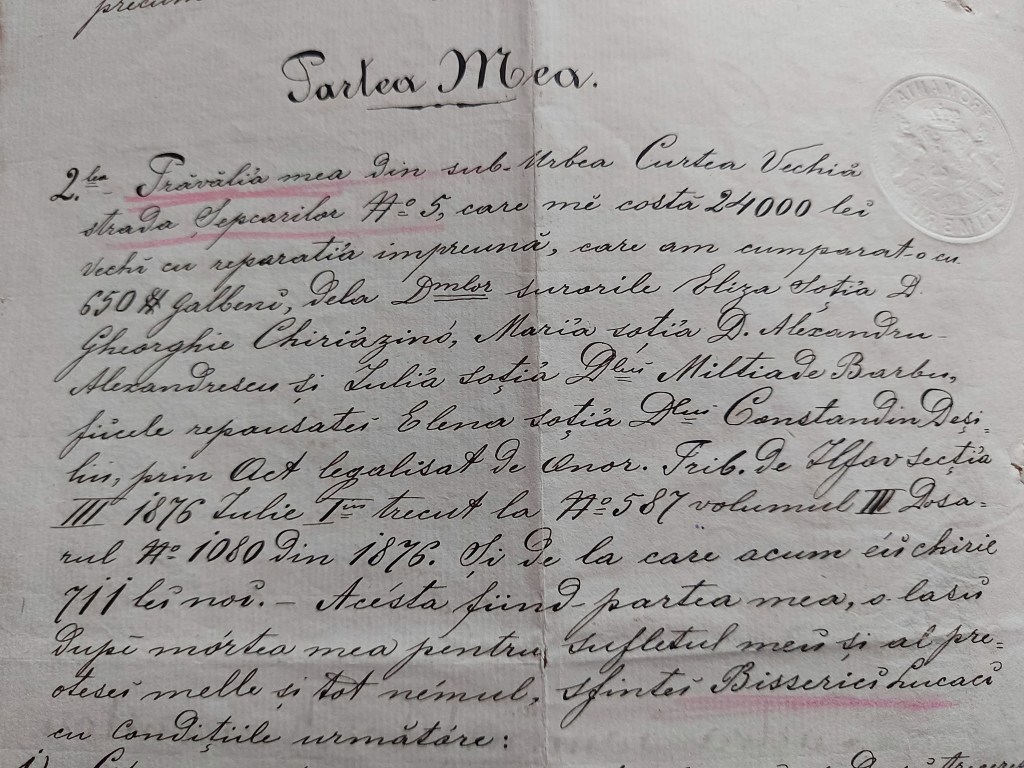 precum
Partea Mea.
2.lea Prăvălia mea din sub-Urbea Curtea Vechiă
strada Șepcarilor No 5, care mĕ costă 24000 lei
vechĭ cu reparatia impreună, care am cumparat-o cu
650 # galbenĭ, dela Dmlor surorile Eliza soția D.
Gheorghie Chiriăzinó, Maria soția D. Aléxandru
Alexandrescu și Iulia soția Dluĭ Miltiade Barbu,
fiicele repausateĭ Elena soția Dluĭ Constandin Deși-
liu, prin Act legalisat de Onor. Trib. de Ilfov secția
III 1876 Iulie Iiu trecut la No 587 volumul III Dosa-
rul No 1080 din 1876. Și de la care acum eŭ chirie
711 leĭ noĭ. – Acésta fiind partea mea, o lasŭ
dupĕ mórtea mea pentru sufletul meŭ și al pre-
oteseĭ melle și tot némul, sfinteĭ Bisericĭ Lucacĭ
cu condițiile următóre: